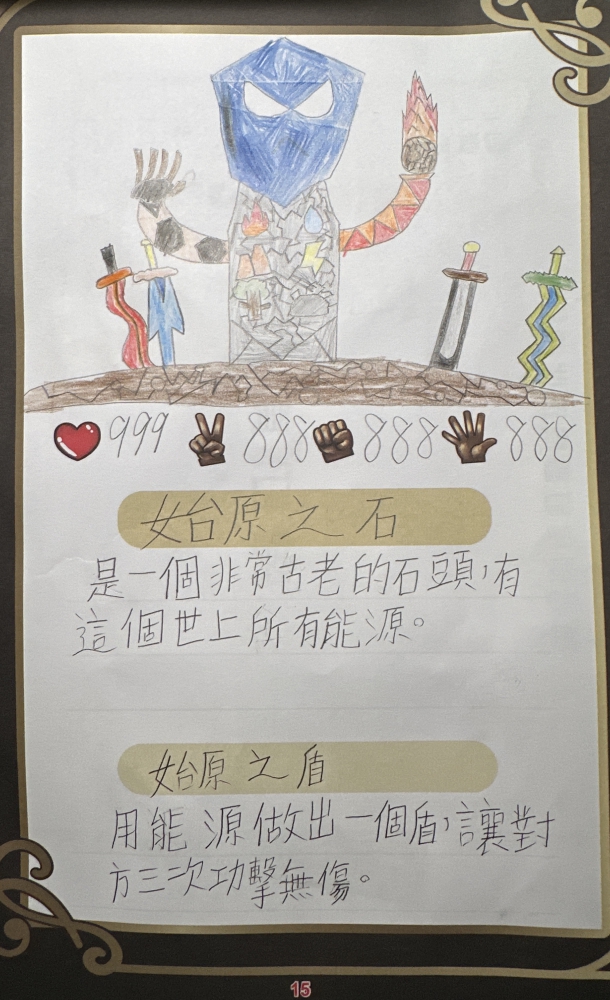 999 888 888 888
始原之石
是一個非常古老的石頭，有
這個世上所有能源。
始原之盾
用能源做出一個盾，讓對
方三次功擊無傷。
15